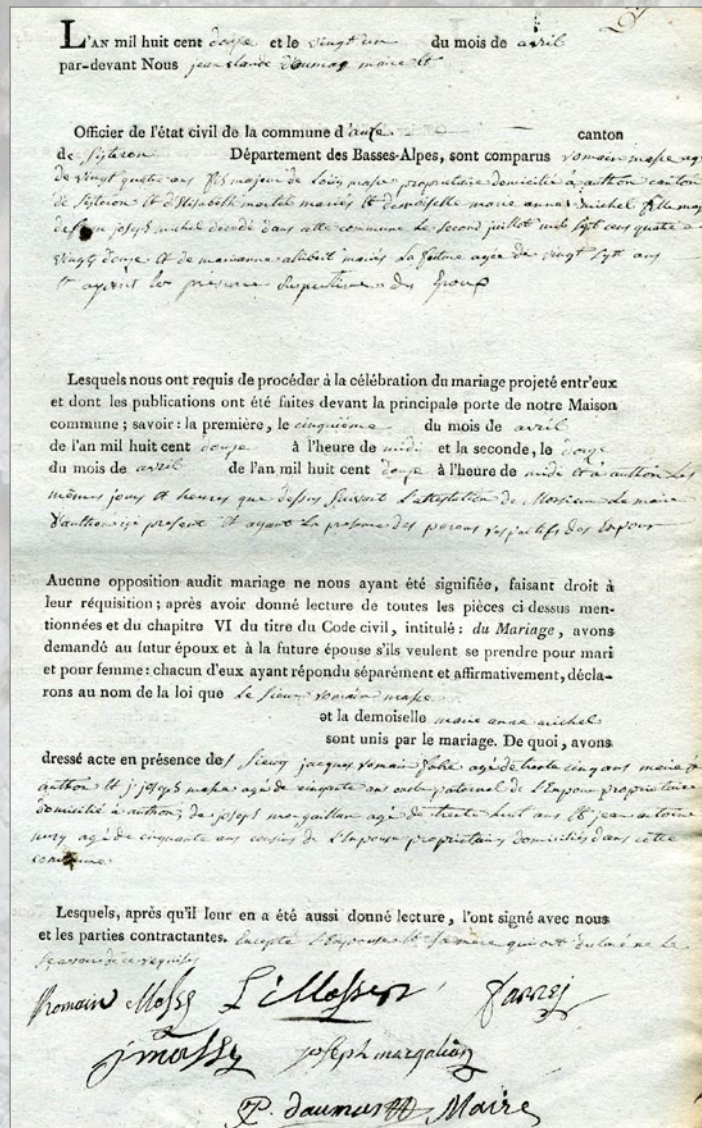 L'AN mil huit cent douze et le vingt un du mois de avril
par-devant Nous jean claude daumas maire et
Officier de l'état civil de la commune d'auze canton
de Sisteron Département des Basses-Alpes, sont comparus romain masse agé
de vingt quatre ans fils majeur de Louis masse proprietaire domicilié à authon canton
de Sisteron et d'Elisabeth martel mariés et demoiselle marie anne michel fille maj
de joseph michel décedé dans cette commune le second juillet mil sept cens quatre
vingt douze et de marianne mariés La future agée de vingt sept ans
et ayant la presence des
Lesquels nous ont requis de procéder à la célébration du mariage projeté entr'eux
et dont les publications ont été faites devant la principale porte de notre Maison
commune ; savoir : la première, le cinquième du mois de avril
de l'an mil huit cent douze à l'heure de midi et la seconde, le douze
du mois de avril de l'an mil huit cent douze à l'heure de midi et à authon Les
mêmes jours et heures que dessus suivant l'attestation de Monsieur Le maire
d'authon ici present et ayant La presence des respectifs des
Aucune opposition audit mariage ne nous ayant été signifiée, faisant droit à
leur réquisition ; après avoir donné lecture de toutes les pièces ci dessus men-
tionnées et du chapitre VI du titre du Code civil, intitulé : du Mariage, avons
demandé au futur époux et à la future épouse s'ils veulent se prendre pour mari
et pour femme : chacun d'eux ayant répondu séparément et affirmativement, décla-
rons au nom de la loi que le sieur romain masse
et la demoiselle marie anne michel
sont unis par le mariage. De quoi, avons
dressé acte en présence des sieurs jacques romain agé de trente cinq ans maire
authon et j. joseph masse agé de cinquante ans oncle paternel de l'Epoux propriétaire
domicilié à authon, de joseph margaillan agé de trente huit ans et jean antoine
agé de cinquante ans cousins de l'Epouse propriétaires domiciliés dans cette
commune
Lesquels, après qu'il leur en a été aussi donné lecture, l'ont signé avec nous
et les parties contractantes. Excepté l'Epouse et sa mère qui ont déclaré ne le
savoir de ce requises
Romain Masse
j masse joseph margalian
daumas Maire